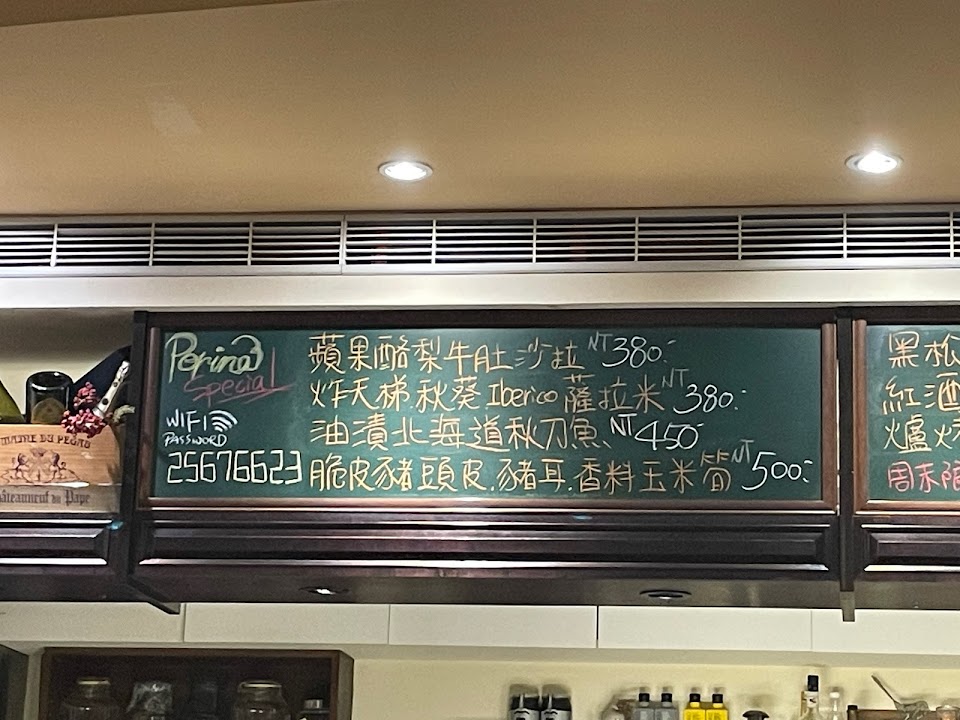 Perina
Special
WIFI
PASSWORD
25676623
蘋果酪梨牛肚沙拉 NT380.-
炸天梯.秋葵.Iberico 薩拉米 NT380.-
油漬北海道秋刀魚 NT450.-
脆皮豬頭皮.豬耳.香料玉米筍 NT500.-
黑松
紅酒
爐
周末
MAIRE DU PEGAU
âteauneuf du Pape